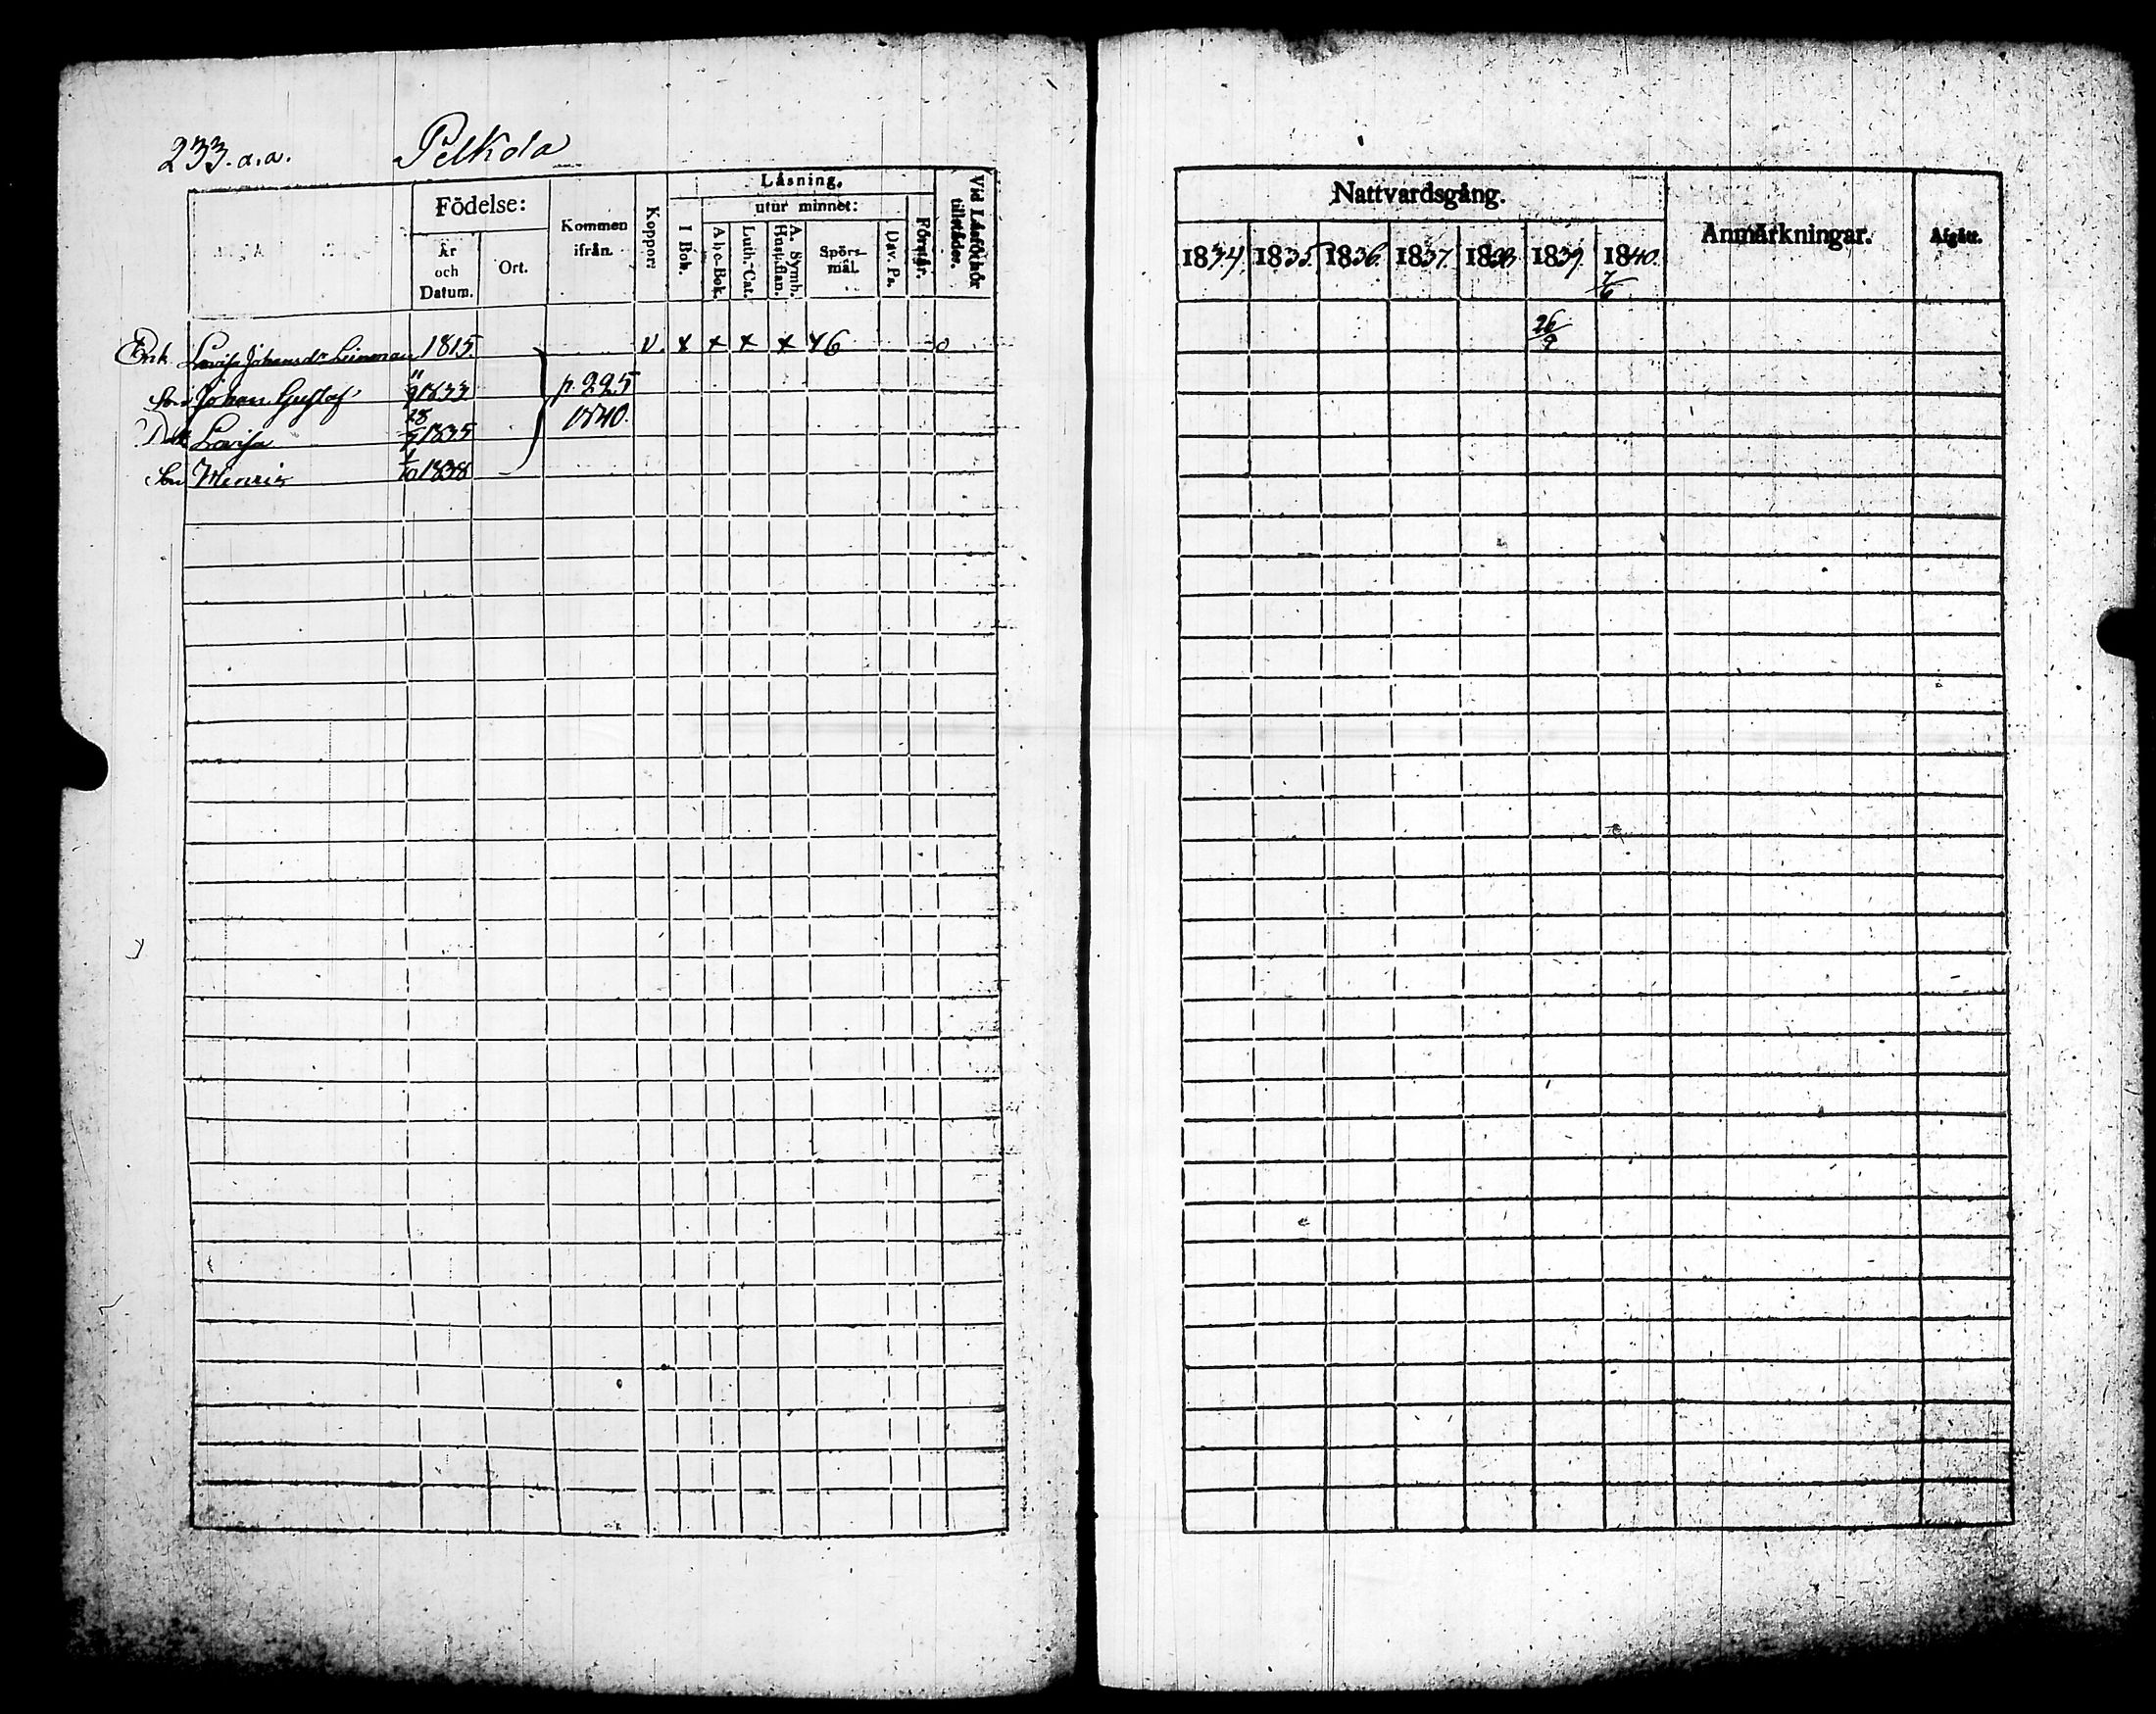 233.a.a. Pelkola
Födelse:
År och Datum.
Ort.
Kommen ifrån.
Koppor:
Läsning.
I Bok.
utur minnet:
A b c-Bok.
Luth. Cat.
A. Symb. Hust. flan.
Spörsmål.
Dav. Ps.
Förmår.
Vid Läsförhör tillstädes.
Nattvardsgång.
1834. 1835. 1836. 1837. 1838 1839. 1840.
Anmärkningar.
Afgått.
7/6
Enk. Lovisa Johansdr Leinman 1815. v. x x x x x6 o 26/9
Son Johan Gustaf 11/9 1833 p. 225
Dott. Lovisa 28/5 1835 1840.
Son Henric 1/10 1838